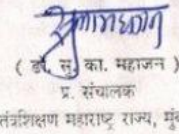 ( डॉ. सु. का. महाजन )
प्र. संचालक
तंत्रशिक्षण महाराष्ट्र राज्य,